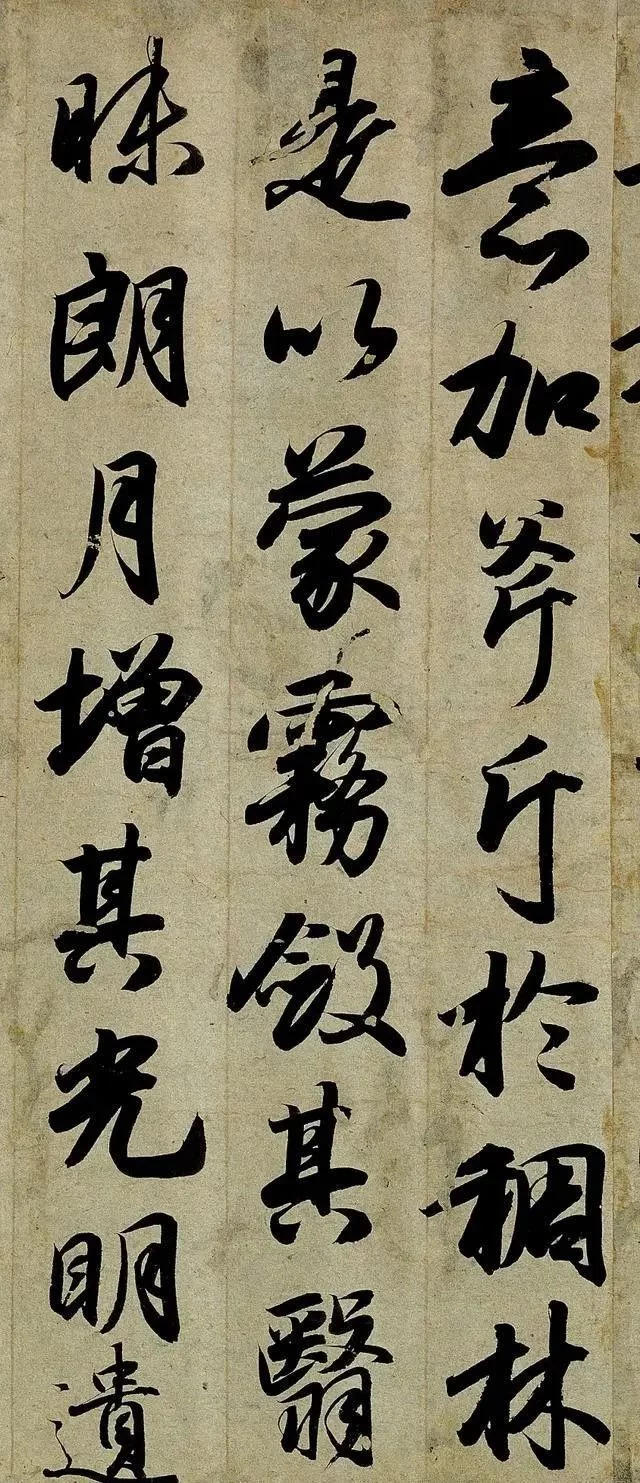 意加斧斤於稠林
是以蒙霧斂其翳
昧朗月增其光明遺